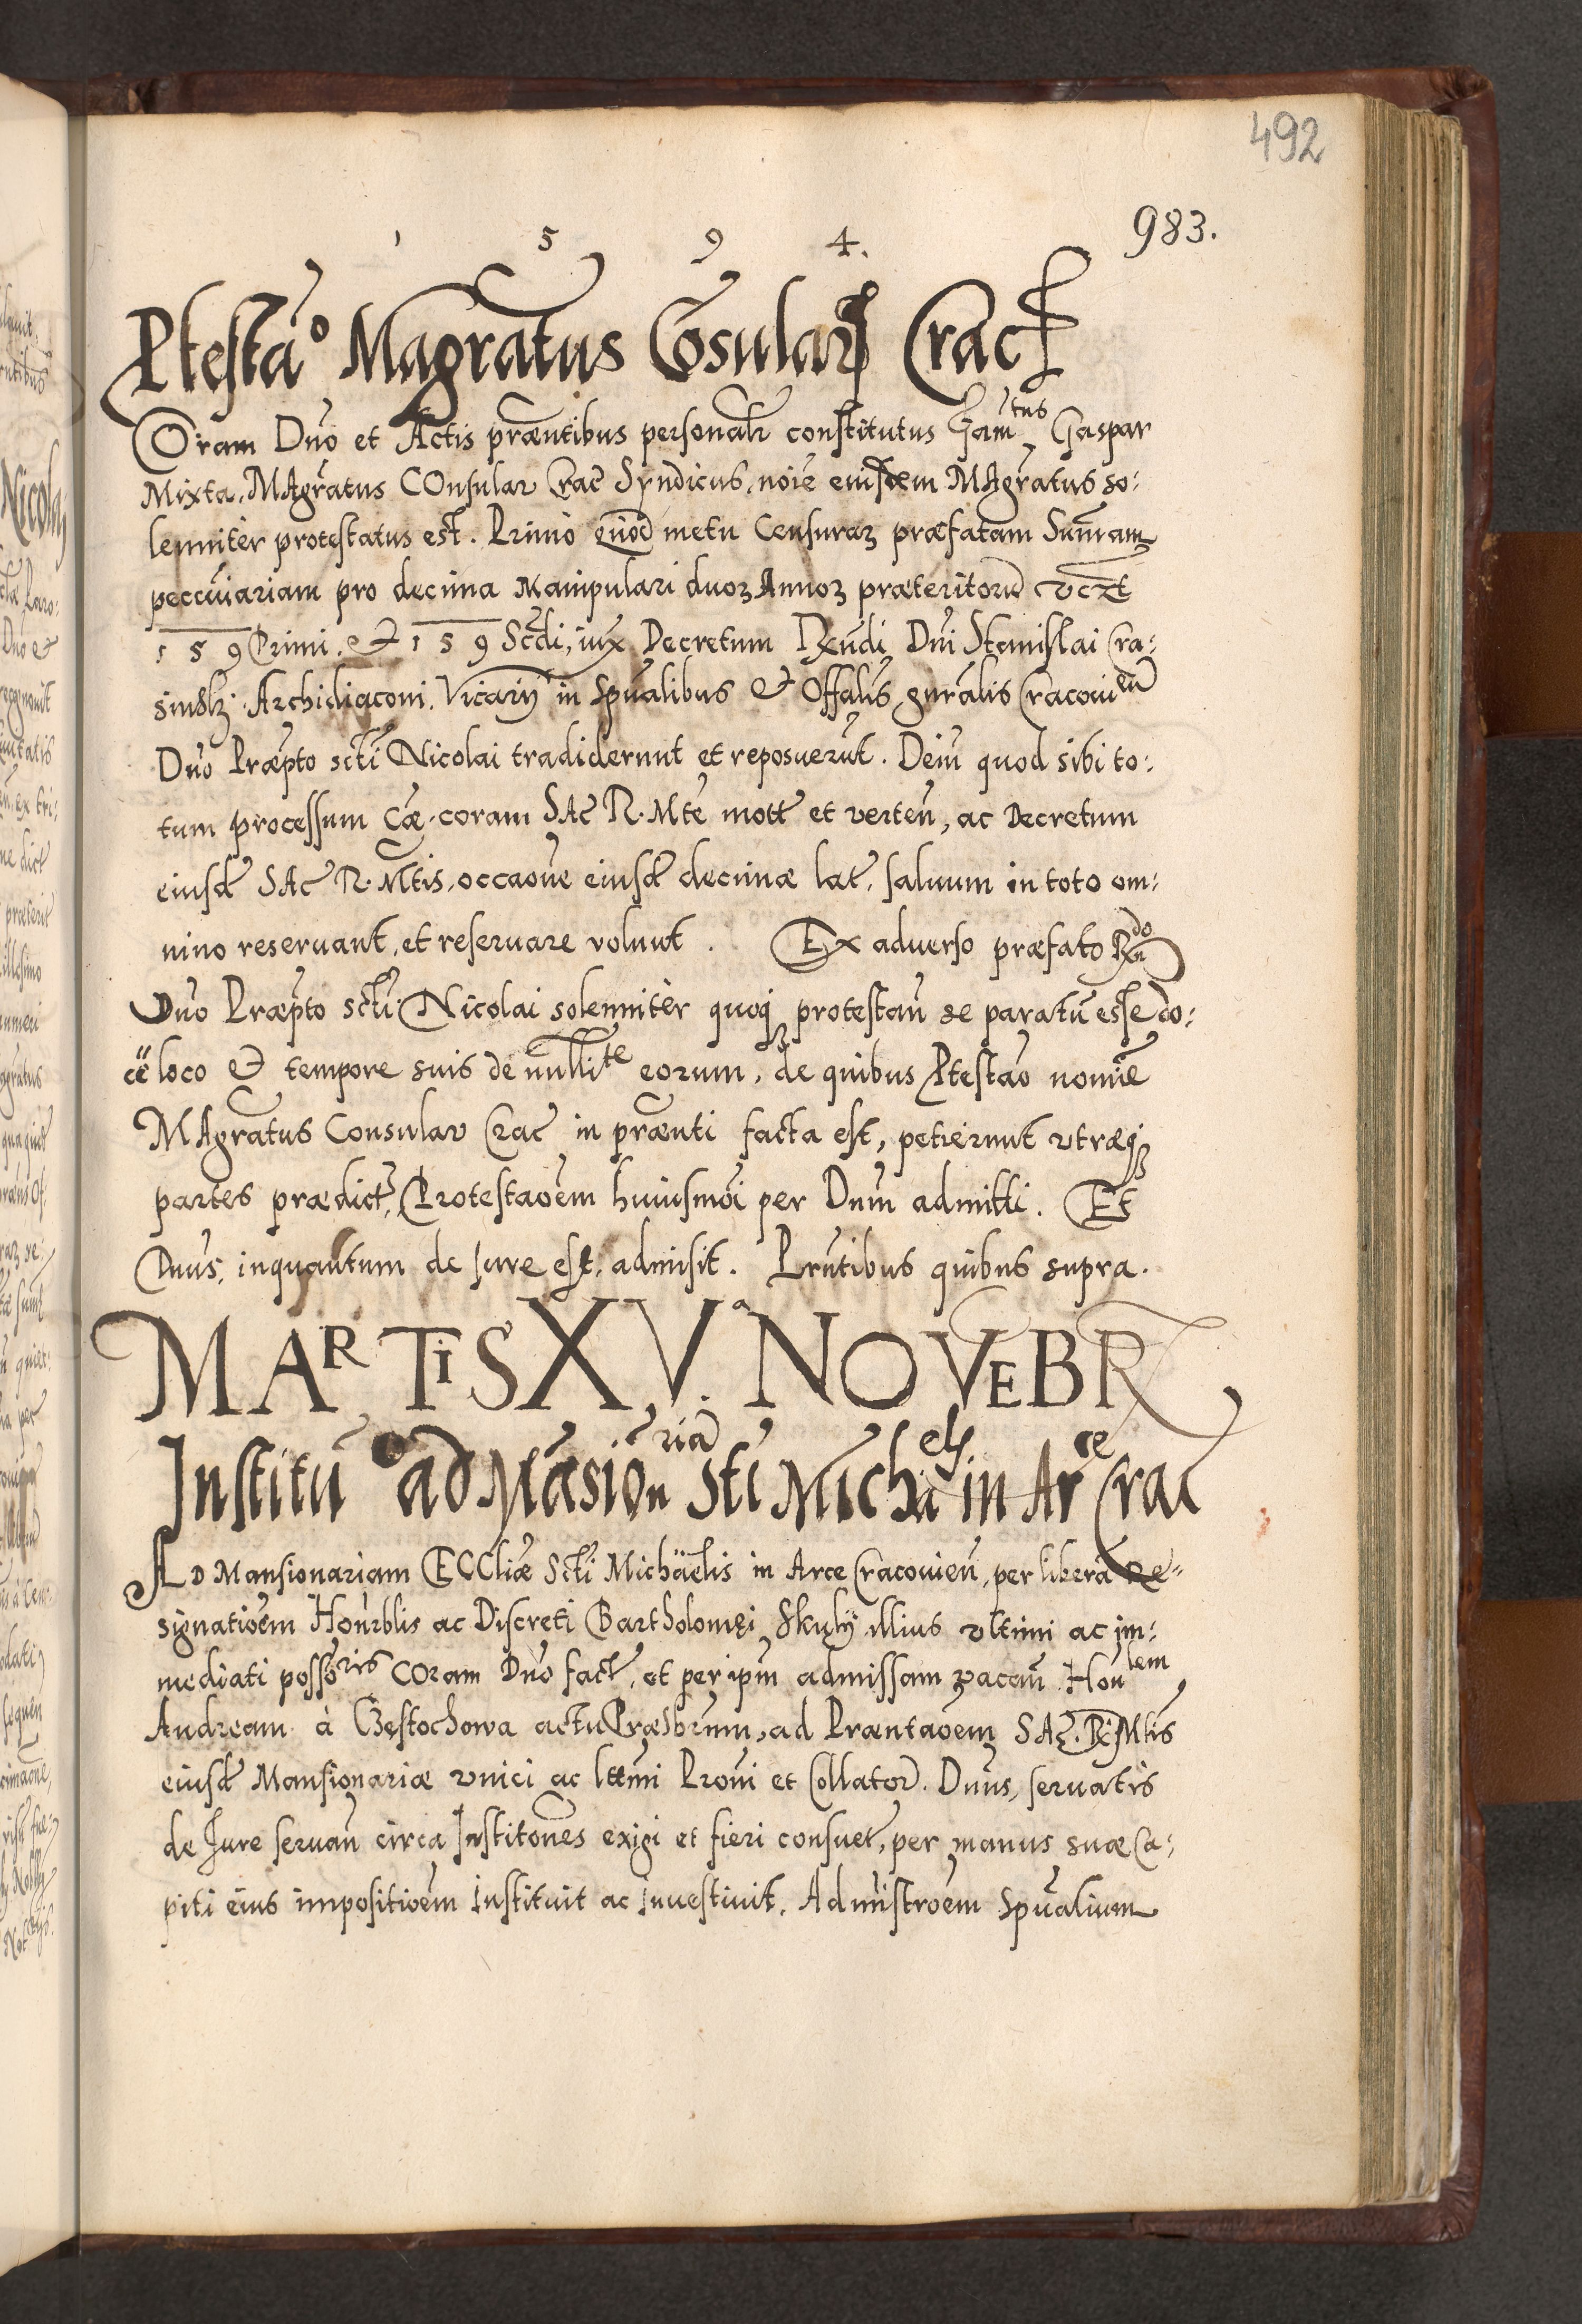 492
983.
1 5 9 4.
Ptestão Magratus Cōsular Crac
Coram Dno et Actis præntibus personalr constitutus Famtus Gaspar
Mixta, MAgratus COnsular Crac Syndicus, noie eiusdem MAgratus so:
lenniter protestatus est. Primo quod metu Censuraꝝ præfatam Summam
peccuniariam pro decima Manipulari duoꝝ Annoꝝ præteritorū vczt
1 5 9 Primi, et 1 5 9 Scdi, iux Decretum Rxndi Dni Stanislai Cra:
sinskj Archidiaconi, Vicarÿ in Spūalibus et Offalis gnralis Cracouien
Dno Præpto scti Nicolai tradiderunt et reposuerūt. Dein quod sibi to:
tum processum Cæ coram SAc R. Mte mott et verten, ac Decretum
eiusd SAc R. Mtis, occaone eiusd decimæ lat, saluum in toto om:
nino reseruant, et reseruare volunt. Ex aduerso præfato Rxndo
Dno Præpto scti Nicolai solenniter quoqꝫ protestan se paratū esse do:
cē loco et tempore suis de nullite eorum, de quibus Ptestao nomīe
MAgratus Consular Crac in prænti facta est, petierunt vtræqꝫ
partes prædict, Protestaoem huiusmōi per Dnm admitti. Et
Dnus, inquantum de Jure est, admisit. Prntibus quibus supra.
MARTIS XVa NOVEBR
Institūo ad Māsionriā Sti Michaels in Arce Crac
AD Mansionariam ECCliæ Scti Michäelis in Arce Cracouien, per liberā Re-
signatioēm Honrblis ac Discreti Bartholomęi Skulÿ illius vltimi ac im:
mediati possoris COram Dno fact, et per ipm admissam vacan, Honlem
Andream à Częstochowa actu Præsbrum, ad Præntaoem SAc. Rę Mtis
eiusd Mansionariæ vnici ac lttmi Proni et Collator. Dnus, seruatis
de Jure seruan circa Institones exigi et fieri consuet, per manus suæ Ca:
piti eius impositioēm Instituit ac Inuestiuit, Admistroēm Spūalium